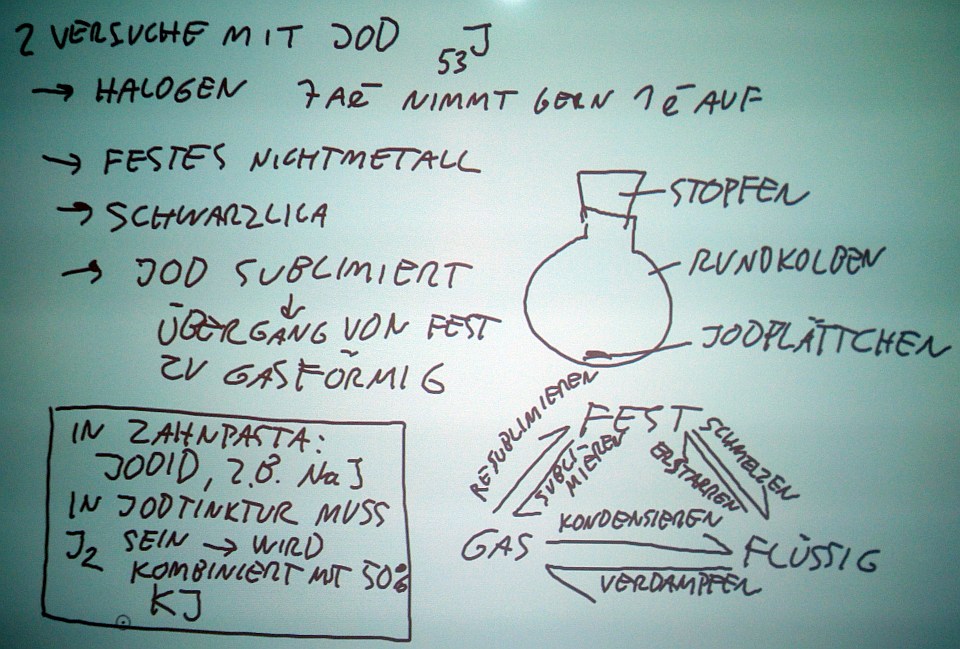 2 VERSUCHE MIT JOD 53J
→ HALOGEN 7 Ae⁻ NIMMT GERN 1 e⁻ AUF
→ FESTES NICHTMETALL
→ SCHWARZLICH
→ JOD SUBLIMIERT
↓
ÜBERGANG VON FEST
ZU GASFÖRMIG
STOPFEN
RUNDKOLBEN
JODPLÄTTCHEN
IN ZAHNPASTA:
JODID, Z.B. NaJ
IN JODTINKTUR MUSS
J2 SEIN → WIRD
KOMBINIERT MIT 50%
KJ
FEST
RESUBLIMIEREN
SUBLI-
MIEREN
ERSTARREN
SCHMELZEN
KONDENSIEREN
GAS
FLÜSSIG
VERDAMPFEN